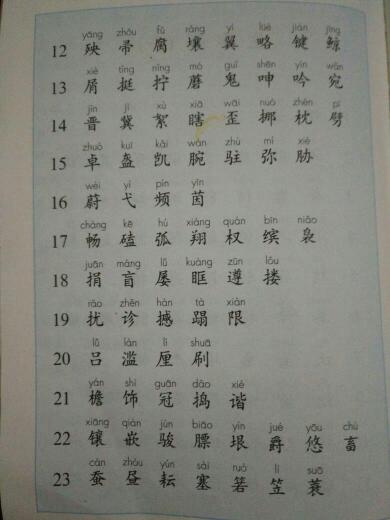 yāng zhǒu fǔ rǎng yì lüè jiàn jīng
12 殃 帚 腐 壤 翼 略 键 鲸
xiè tǐng nǐng mó guǐ shēn yín wǎn
13 屑 挺 拧 磨 鬼 呻 吟 宛
jìn jì xù xiā wāi nuó zhěn pī
14 晋 冀 絮 瞎 歪 挪 枕 劈
zhuó kuī kǎi wàn zhù mí xié
15 卓 盔 凯 腕 驻 弥 胁
wèi yì pín yīn
16 蔚 弋 频 茵
chàng kē hú xiáng quán bīn niǎo
17 畅 磕 弧 翔 权 缤 袅
juān máng lǚ kuàng zūn lǒu
18 捐 盲 屡 眶 遵 搂
rǎo zhěn hàn tā xiàn
19 扰 诊 撼 蹋 限
lǚ làn lí shuā
20 吕 滥 厘 刷
yán shì guān dǎo xié
21 檐 饰 冠 捣 谐
xiāng qiàn jùn biāo yín jué yōu chù
22 镶 嵌 骏 膘 垠 爵 悠 畜
cán zhòu yún sài ruò lì suō
23 蚕 昼 耘 塞 箬 笠 蓑